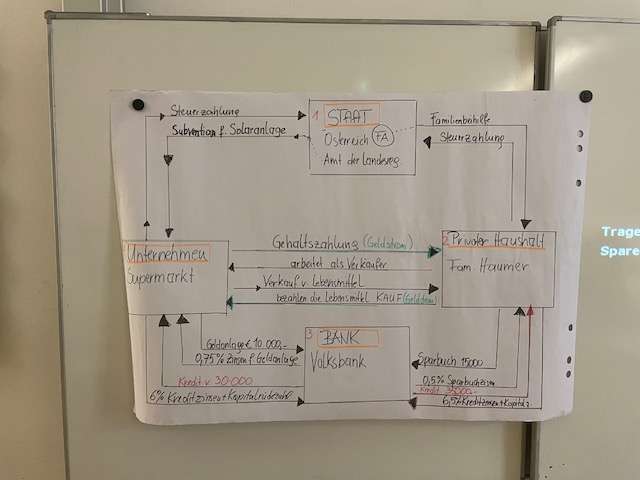 Steuerzahlung
Subvention f. Solaranlage
1 STAAT
Österreich FA
Amt der Landesreg.
Familienbeihilfe
Steuerzahlung
Unternehmen
Supermarkt
Gehaltszahlung (Geldstrom)
arbeitet als Verkäufer
Verkauf v. Lebensmittel
bezahlen die Lebensmittel KAUF (Geldstrom)
2 Privater Haushalt
Fam. Haumer
Geldanlage € 10.000,-
0,75% Zinsen f. Geldanlage
Kredit v. 30.000
6% Kreditzinsen + Kapitalrückzahl
3 BANK
Volksbank
Sparbuch 15000
0,5% Sparbuchzinsen
Kredit
6,5% Kreditzinsen + Kapital
Trage
Spare